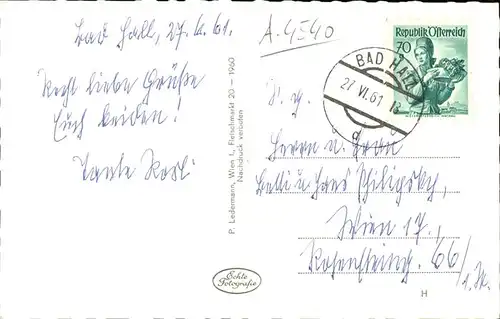 Bad Hall, 27.6.61.
Recht liebe Grüße
Euch beiden!
Tante Resl
P. Ledermann, Wien I., Fleischmarkt 20 – 1960
Nachdruck verboten
Echte
Fotografie
A-4540
Republik Österreich
70
BAD HALL
27. VI. 61
d
Herrn u. Frau
u. Hans
Wien 17.,
66/
H